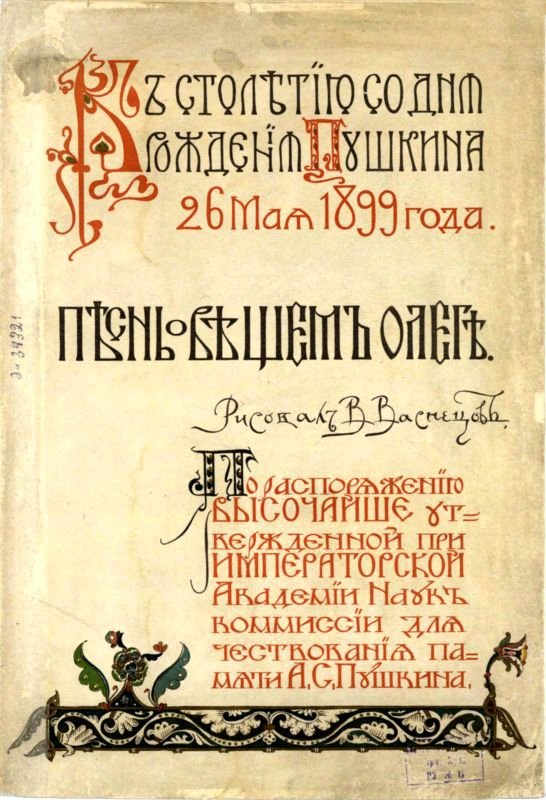 Къ столѣтію со дня
рожденія Пушкина
26 Мая 1899 года.
ПѢСНЬ О ВѢЩЕМЪ ОЛЕГѢ.
Рисовалъ В. Васнецовъ.
По распоряженію
ВЫСОЧАЙШЕ ут=
вержденной при
ИМПЕРАТОРСКОЙ
Академіи Наукъ
коммиссіи для
чествованія па=
мяти А.С.Пушкина.
34321